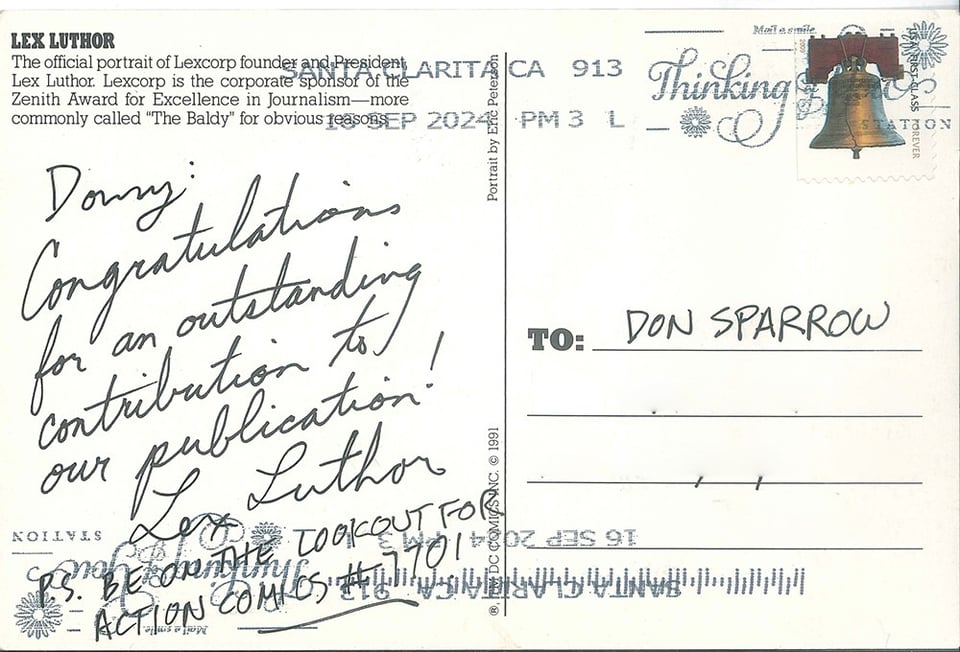 LEX LUTHOR
The official portrait of Lexcorp founder and President,
Lex Luthor. Lexcorp is the corporate sponsor of the
Zenith Award for Excellence in Journalism—more
commonly called "The Baldy" for obvious reasons.
SANTA CLARITA CA 913
16 SEP 2024 PM 3 L
Mail a smile.
Thinking
STATION
USA FIRST-CLASS FOREVER
Portrait by Eric Peterson
Donny:
Congratulations
for an outstanding
contribution to
our publication!
Lex Luthor
P.S. BE ON THE LOOKOUT FOR
ACTION COMICS # 7701
TO: DON SPARROW
®, TM DC COMICS INC. © 1991
16 SEP 2024 PM 3 L
SANTA CLARITA CA 913
STATION
Thinking
of You
Mail a smile.